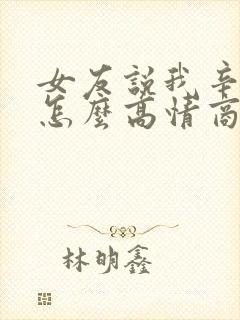 女友說我辛
怎麼高情商
林明鑫